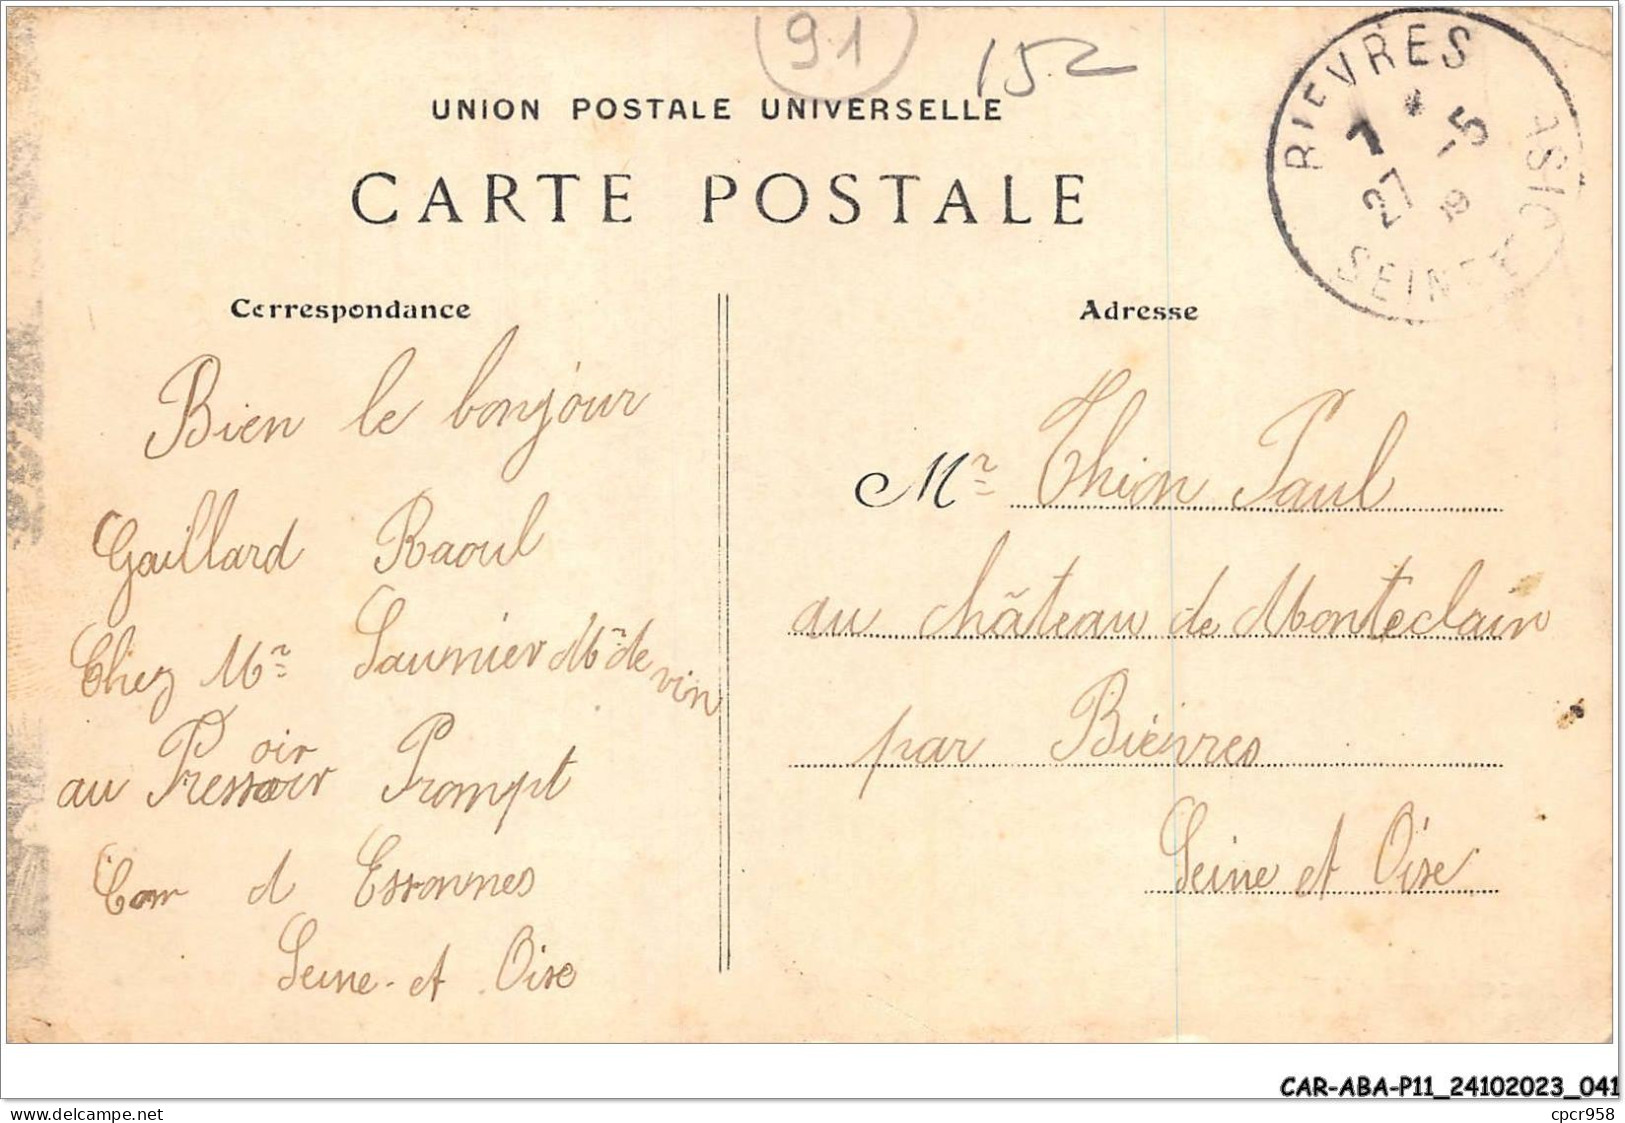 91
152
UNION POSTALE UNIVERSELLE
CARTE POSTALE
BIEVRES
7 * 27 -5 19
SEINE ET OISE
Correspondance
Adresse
Bien le bonjour
Gaillard Raoul
Chez Mr Saunier Md de vin
au Pressoir Prompt
oir
d Essonnes
Seine-et Oise
Mr Thion Paul
au château de Monteclain
par Bièvres
Seine et Oise
CAR-ABA-P11_24102023_041
www.delcampe.net
cpcr958